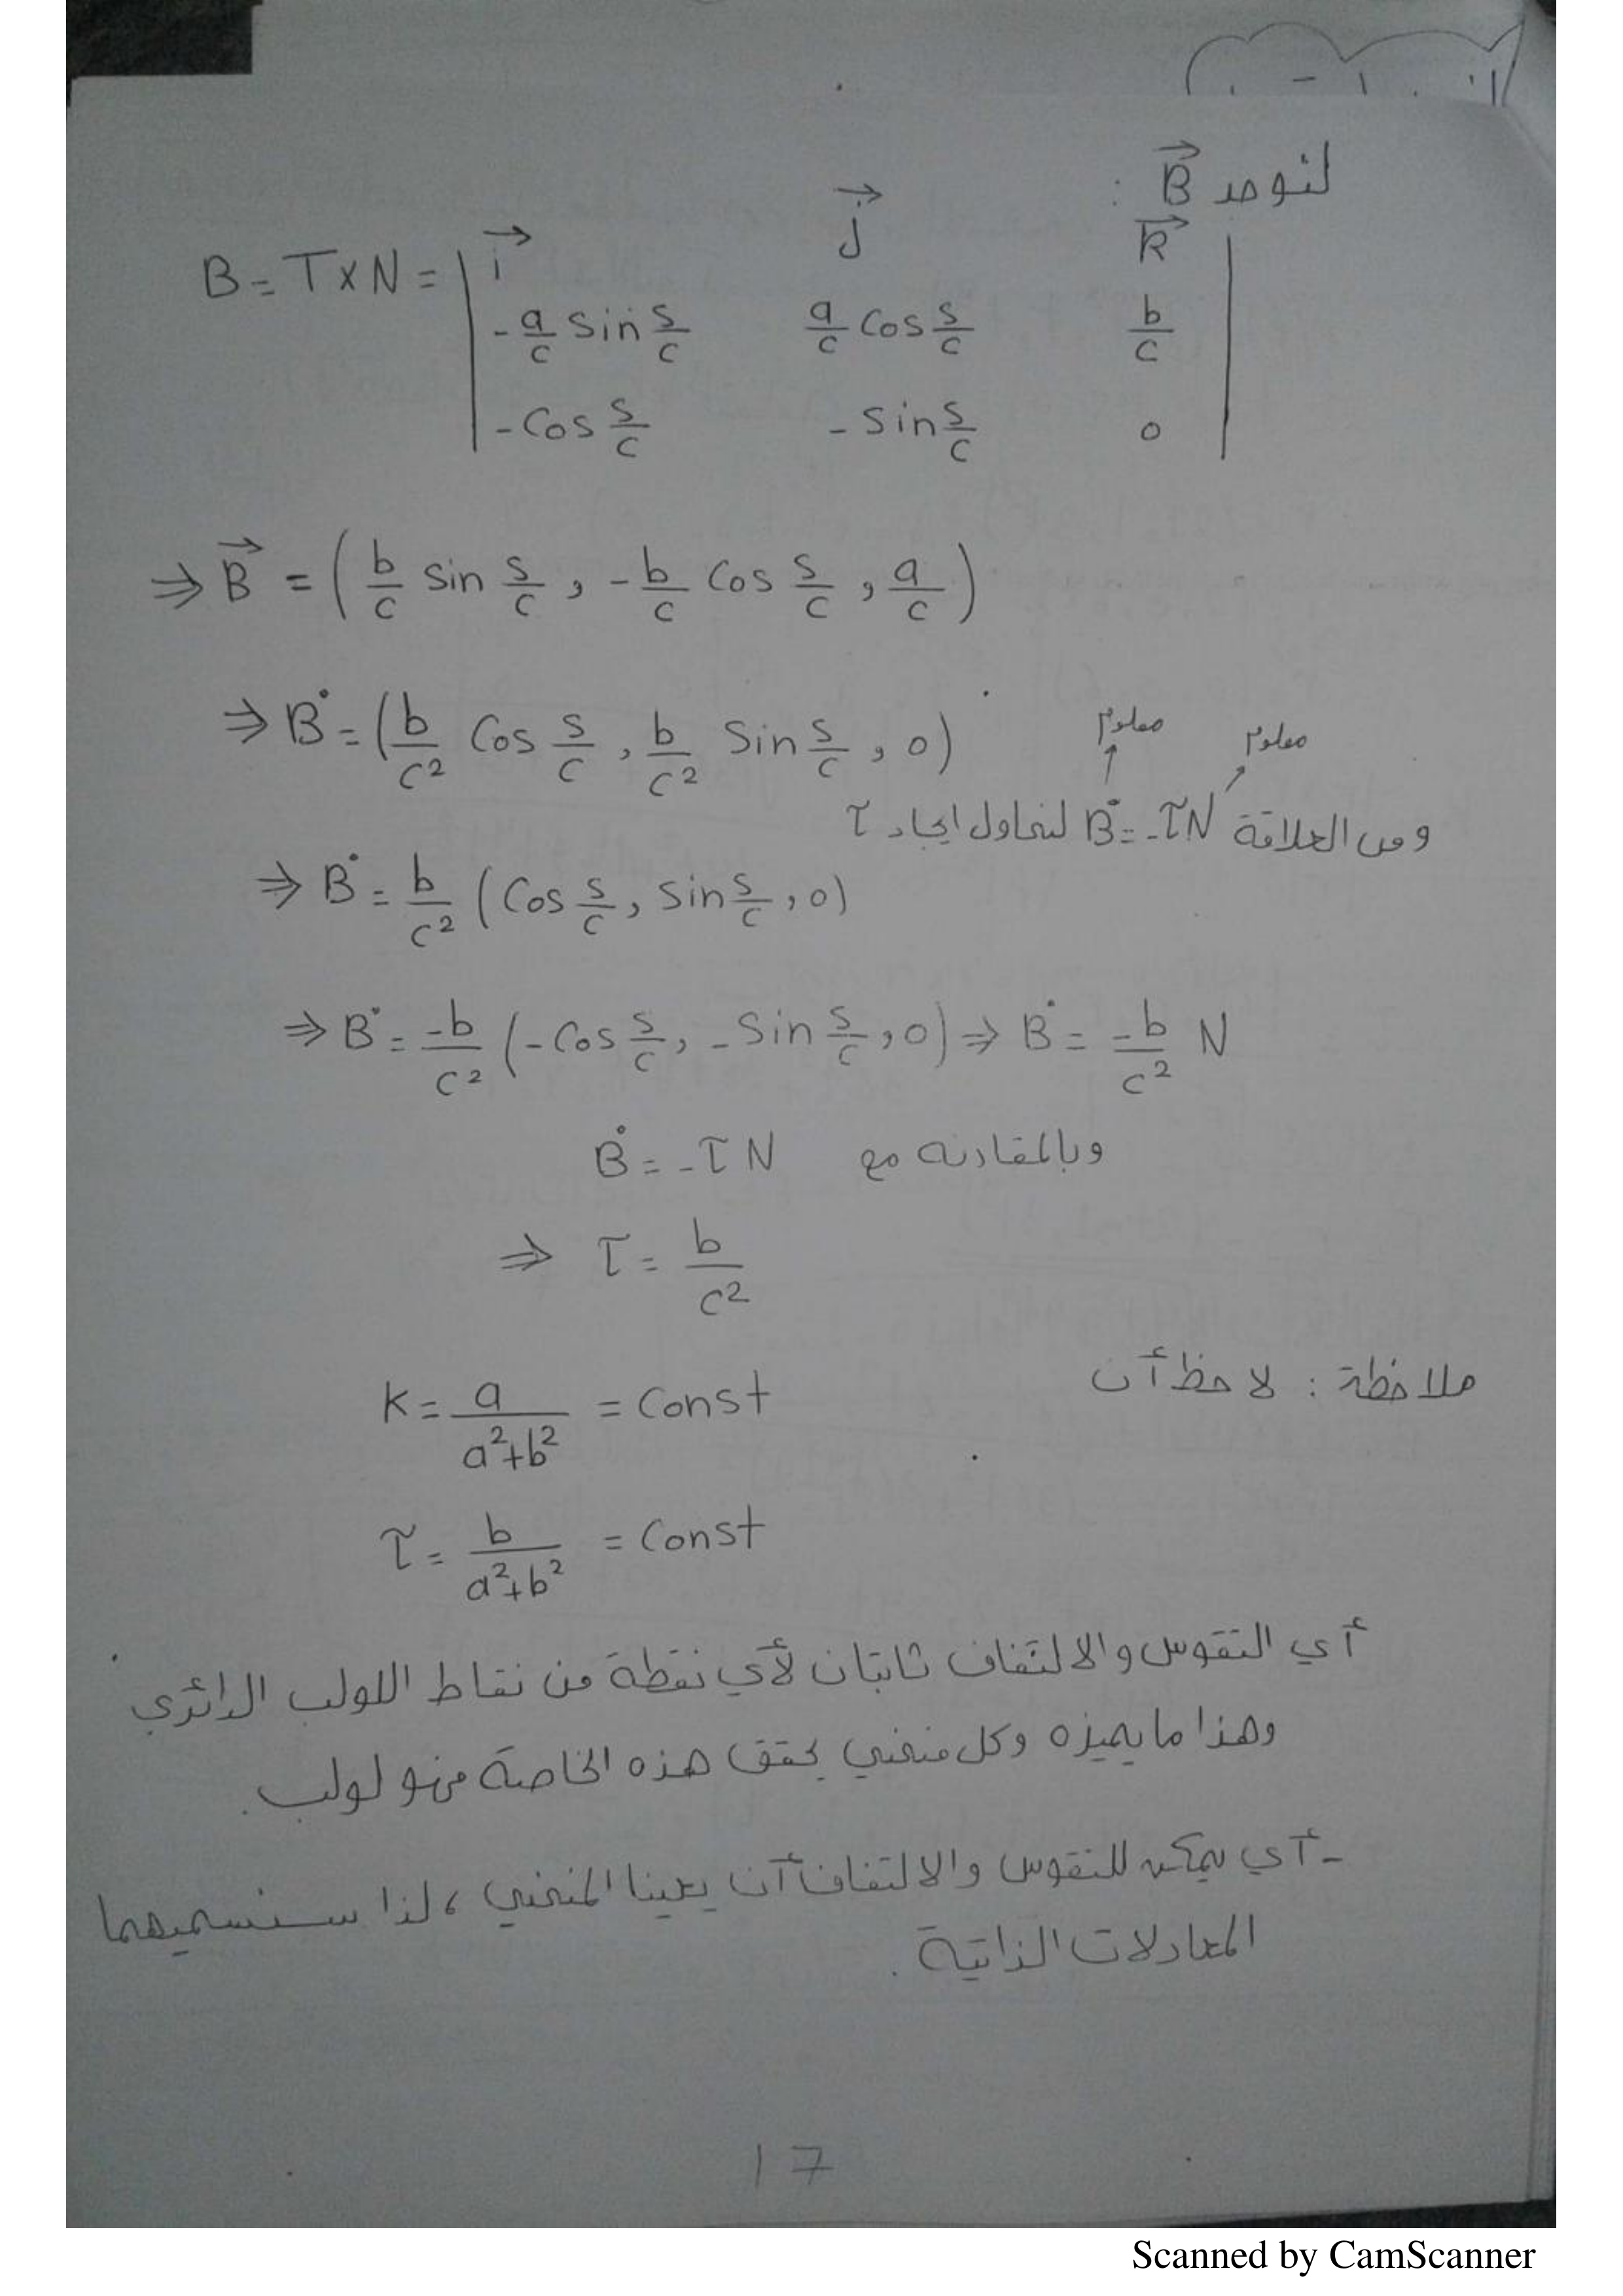 لنوجد B⃗ :
B = T × N = | i⃗ j⃗ k⃗ |
-a/c sin s/c a/c cos s/c b/c
-cos s/c - sin s/c 0
⇒ B⃗ = (b/c sin s/c , -b/c cos s/c , a/c)
⇒ B˙ = (b/c² cos s/c , b/c² sin s/c , 0)
معلوم معلوم
ومن العلاقة B˙ = -τN لنحاول ايجاد τ
⇒ B˙ = b/c² (cos s/c , sin s/c , 0)
⇒ B˙ = -b/c² (-cos s/c , -sin s/c , 0) ⇒ B˙ = -b/c² N
وبالمقارنه مع B˙ = -τN
⇒ τ = b/c²
ملاحظة : لاحظ أن
K = a/a²+b² = const
τ = b/a²+b² = const
أي التقوس والالتفاف ثابتان لأي نقطة من نقاط اللولب الدائري
وهذا ما يميزه وكل منحني يحقق هذه الخاصة فهو لولب .
- أي يمكن للتقوس والالتفاف أن يعينا المنحني ، لذا سنسميهما
المعادلات الذاتية .
17
Scanned by CamScanner